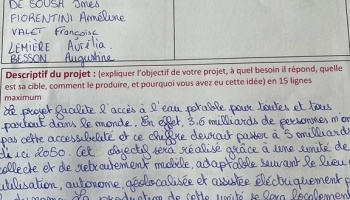 DE SOUSA Ines
FIORENTINI Anneline
VALET Françoise
LEMIÈRE Aurélia
BESSON Augustine
Descriptif du projet : (expliquer l'objectif de votre projet, à quel besoin il répond, quelle
est sa cible, comment le produire, et pourquoi vous avez eu cette idée) en 15 lignes
maximum
Le projet facilite l'accès à l'eau potable pour toutes et tous
partout dans le monde. En effet, 3.6 milliards de personnes n'on
pas cette accessibilité et ce chiffre devrait passer à 5 milliards
d'ici 2050. Cet objectif sera réalisé grâce à une unité de
collecte et de retraitement mobile, adaptable suivant le lieu
utilisation, autonome, géolocalisée et assistée électriquement p
production de cette unité se fera localement